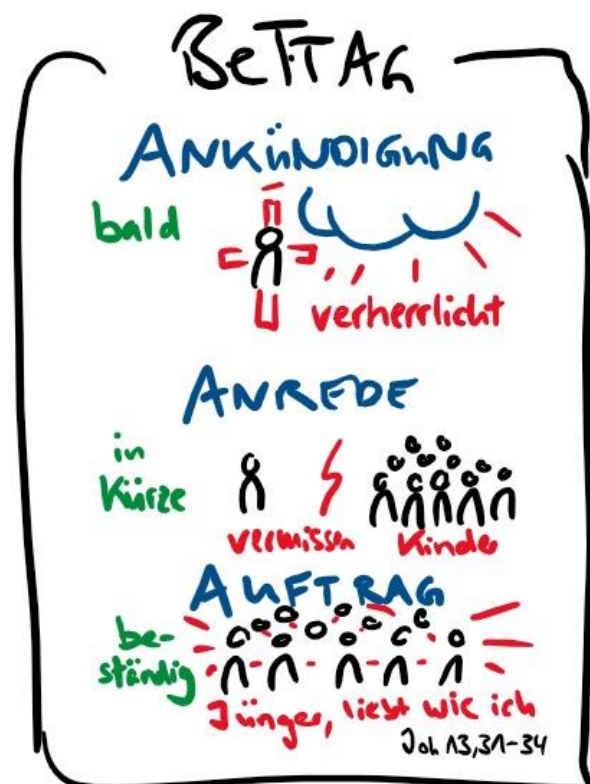 BETTAG
ANKÜNDIGUNG
bald
verherrlicht
ANREDE
in
Kürze
vermissen Kinder
AUFTRAG
be-
ständig
Jünger, liebt wie ich
Joh 13,31-34